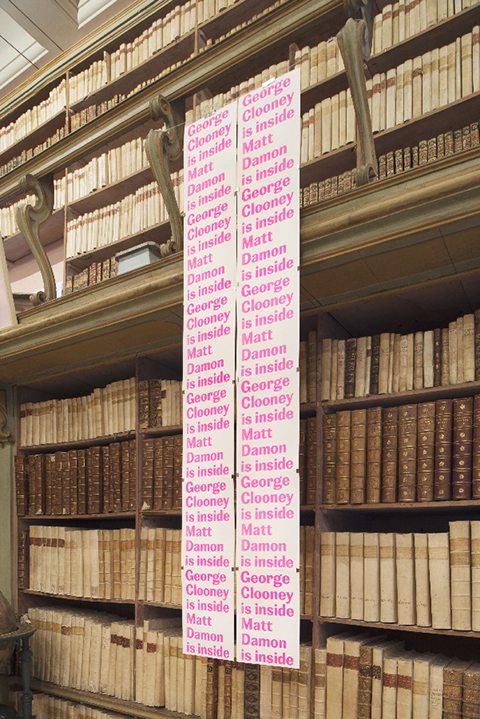 George
Clooney
is inside
Matt
Damon
is inside
George
Clooney
is inside
Matt
Damon
is inside
George
Clooney
is inside
Matt
Damon
is inside
George
Clooney
is inside
Matt
Damon
is inside
George
Clooney
is inside
Matt
Damon
is inside
George
Clooney
is inside
Matt
Damon
is inside
George
Clooney
is inside
Matt
Damon
is inside
George
Clooney
is inside
Matt
Damon
is inside
George
Clooney
is inside
Matt
Damon
is inside
George
Clooney
is inside
Matt
Damon
is inside
George
Clooney
is inside
Matt
Damon
is inside
George
Clooney
is inside
Matt
Damon
is inside